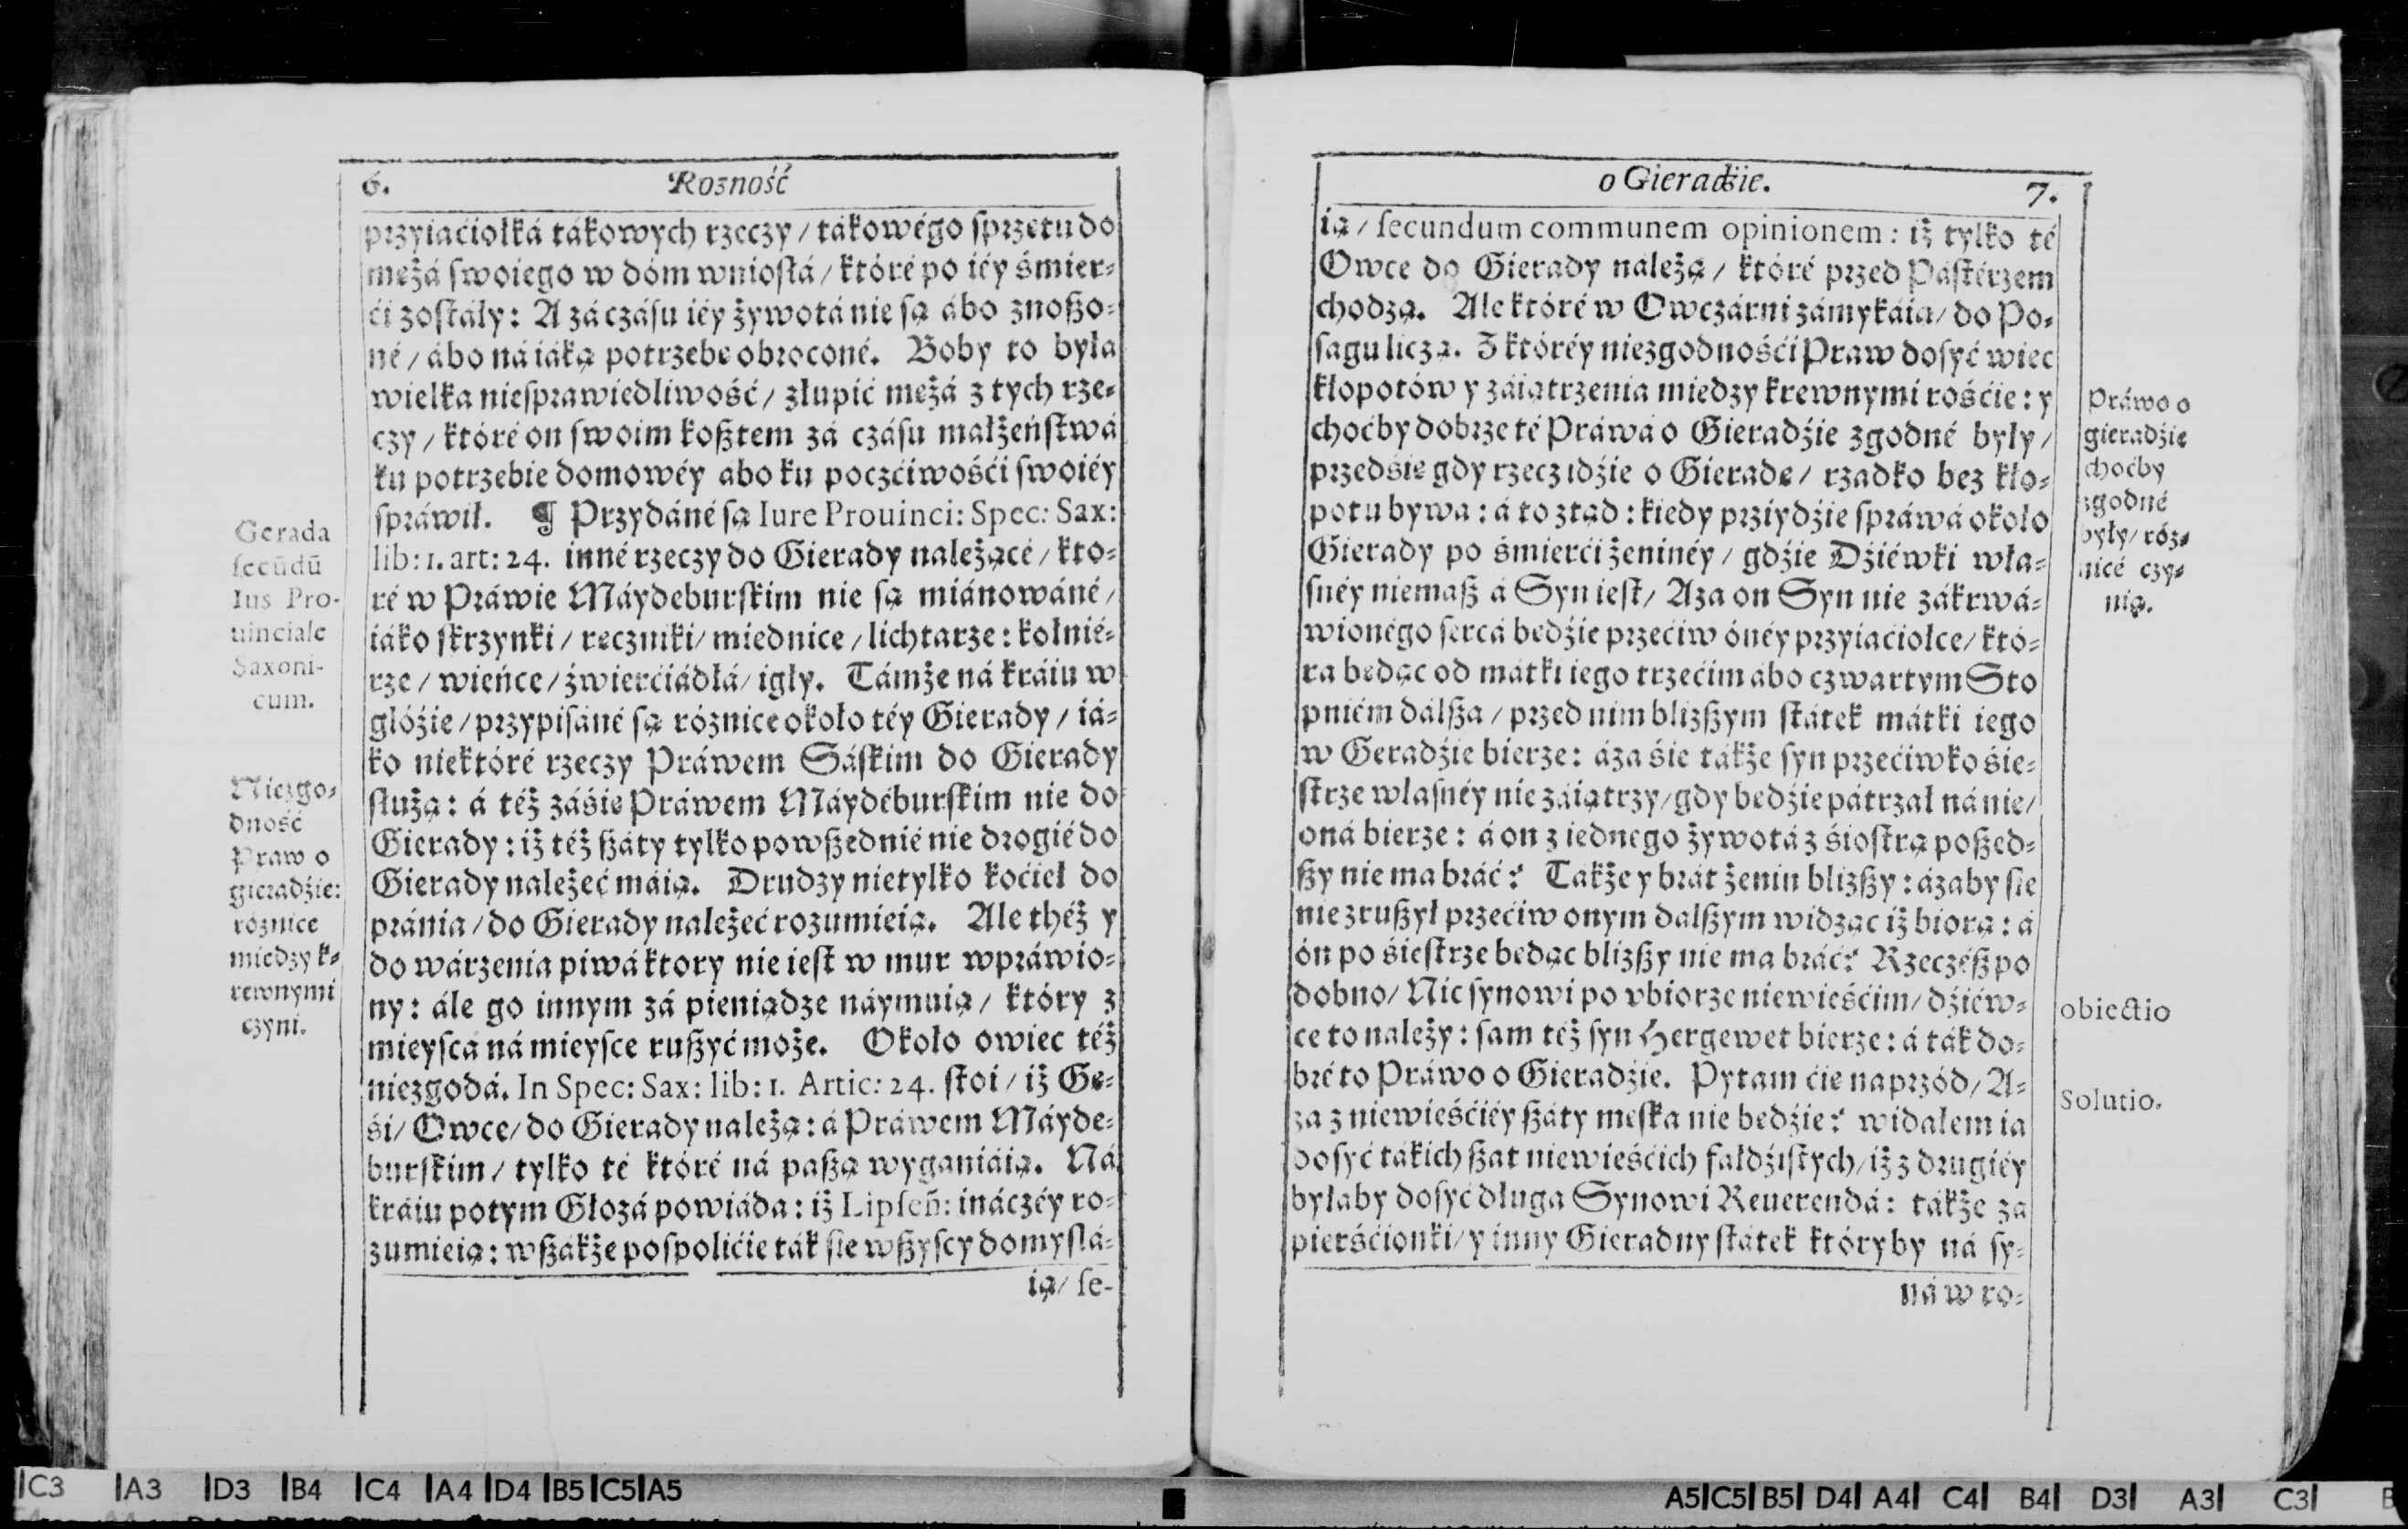 6. Rozność
przyiaćiołká tákowych rzeczy / tákowégo sprzetu do
mężá swoiego w dóm wniosłá / któré po iéy śmier-
ći zostáły: A zá czásu iéy żywotá nie są ábo znoßo-
né / ábo ná iáką potrzebe obroconé. Boby to była
wielka niesprawiedliwość / złupić mężá z tych rze-
czy / któré on swoim koßtem zá czásu małżeństwá
ku potrzebie domowéy abo ku poczćiwośći swoiéy
spráwił. ¶ Przydáné są Iure Prouinci: Spec: Sax:
lib: 1. art: 24. inné rzeczy do Gierady należącé / kto-
ré w Práwie Máydeburskim nie są miánowáné /
iáko skrzynki / reczniki / miednice / lichtarze: kołnié-
rze / wieńce / źwierćiádłá / igły. Támże ná kráiu w
glóźie / przypisáné są róznice około téy Gierady / iá-
ko niektóré rzeczy Práwem Sáskim do Gierady
służą: á téż záśie Práwem Máydéburskim nie do
Gierady: iż téż ßáty tylko powßednié nie drogié do
Gierady należeć máią. Drudzy nietylko koćieł do
pránia / do Gierady należeć rozumieią. Ale théż y
do wárzenia piwá ktory nie iest w mur wpráwio-
ny: ále go innym zá pieniądze náymuią / który z
mieyscá ná mieysce rußyć może. Około owiec téż
niezgodá. In Spec: Sax: lib: 1. Artic: 24. stoi / iż Ge-
śi / Owce / do Gierady należą: á Práwem Máyde-
burskim / tylko té któré ná paßą wyganiáią. Ná
kráiu potym Glozá powiáda: iż Lipseñ: ináczéy ro-
zumieią: wßákże pospolićie ták sie wßyscy domyslá-
ią / se-
Gerada
secūdū
Ius Pro-
uinciale
Saxoni-
cum.
Niezgo-
dność
Praw o
gieradźie:
róznice
miedzy k-
rewnymi
czyni.
o Gieradźie. 7.
ią / secundum communem opinionem: iż tylko té
Owce do Gierady należą / któré przed Pástérzem
chodzą. Ale któré w Owczárni zámykáią / do Po-
sagu liczą. Z któréy niezgodnośći Praw dosyć wiec
kłopotów y záiątrzenia miedzy krewnymi rośćie: y
choćby dobrze té Práwá o Gieradźie zgodné były /
przedśie gdy rzecz idźie o Gierade / rzadko bez kło-
potu bywa: á to ztąd: kiedy przyidźie spráwá około
Gierady po śmierći żeninéy / gdźie Dźiéwki wła-
snéy niemaß á Syn iest / Aza on Syn nie zákrwá-
wionégo sercá bedźie przećiw ónéy przyiaćiołce / któ-
ra bedąc od mátki iego trzećim ábo czwartym Sto
pniém dálßa / przed nim blizßym státek mátki iego
w Geradźie bierze: áza śie tákże syn przećiwko śie-
strze własnéy nie záiątrzy / gdy bedźie pátrzał ná nie /
oná bierze: á on z iednego żywotá z śiostrą poßed-
ßy nie ma bráć? Tákże y brát żenin blizßy: ázaby sie
nie zrußył przećiw onym dalßym widząc iż biorą: á
ón po śiestrze bedąc blizßy nie ma bráć? Rzeczéß po
dobno / Nic synowi po vbiorze niewieśćim / dźiéw-
ce to należy: sam téż syn Hergewet bierze: á ták do-
bré to Práwo o Gieradźie. Pytam ćie naprzód / A-
za z niewieśćiéy ßáty meska nie bedźie? widałem ia
dosyć tákich ßat niewieśćich fałdźistych / iż z drugiéy
byłaby dosyć długa Synowi Reuerendá: tákże za
pierśćionki / y inny Gieradny státek któryby ná sy-
ná w ro-
Práwo o
gieradźie
choćby
zgodné
były / róz-
nicé czy-
nią.
obiectio
Solutio.
C3 A3 D3 B4 C4 A4 D4 B5 C5 A5
A5 C5 B5 D4 A4 C4 B4 D3 A3 C3